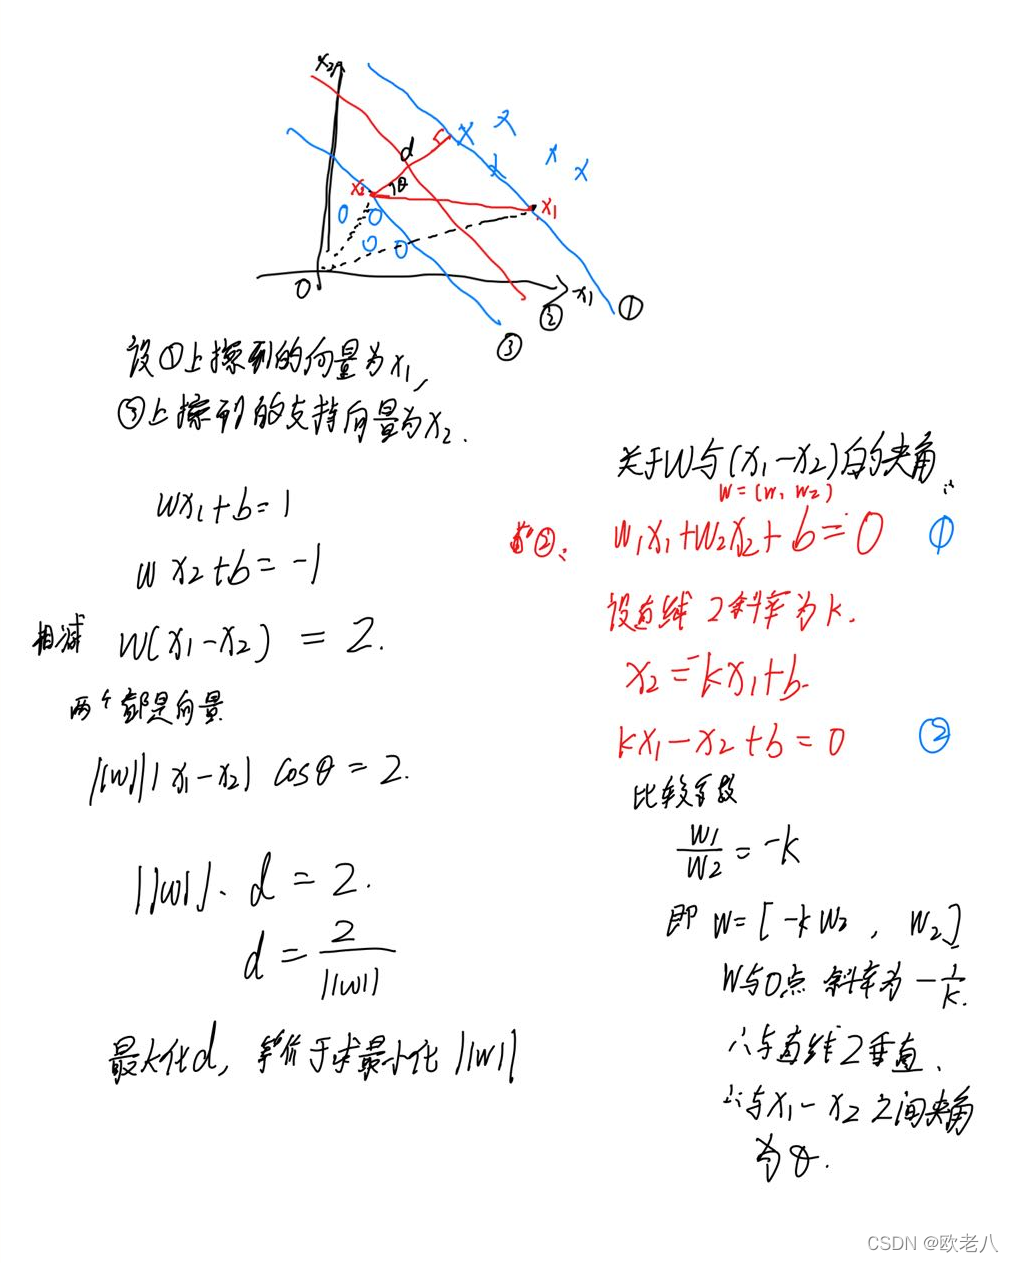 x₂
d
θ
x₂
x₁
0
x₁
②
①
③
设①上擦到的向量为x₁,
③上擦到的支持向量为x₂.
wx₁+b=1
wx₂+b=-1
相减 w(x₁-x₂) = 2.
两个都是向量
||w|| |x₁-x₂| cosθ = 2.
||w||· d = 2.
d = 2/||w||
最大化d, 等价于求最小化 ||w||
关于W与(x₁-x₂)的夹角
w=(w₁ w₂)
②: w₁x₁+w₂x₂+b=0 ①
设直线2斜率为k.
x₂=kx₁+b
kx₁-x₂+b=0 ②
比较系数
w₁/w₂=-k
即 w=[-kw₂, w₂]
W与0点 斜率为 -1/k.
∴与直线2垂直.
∴与x₁-x₂之间夹角
为θ.
CSDN @欧老八